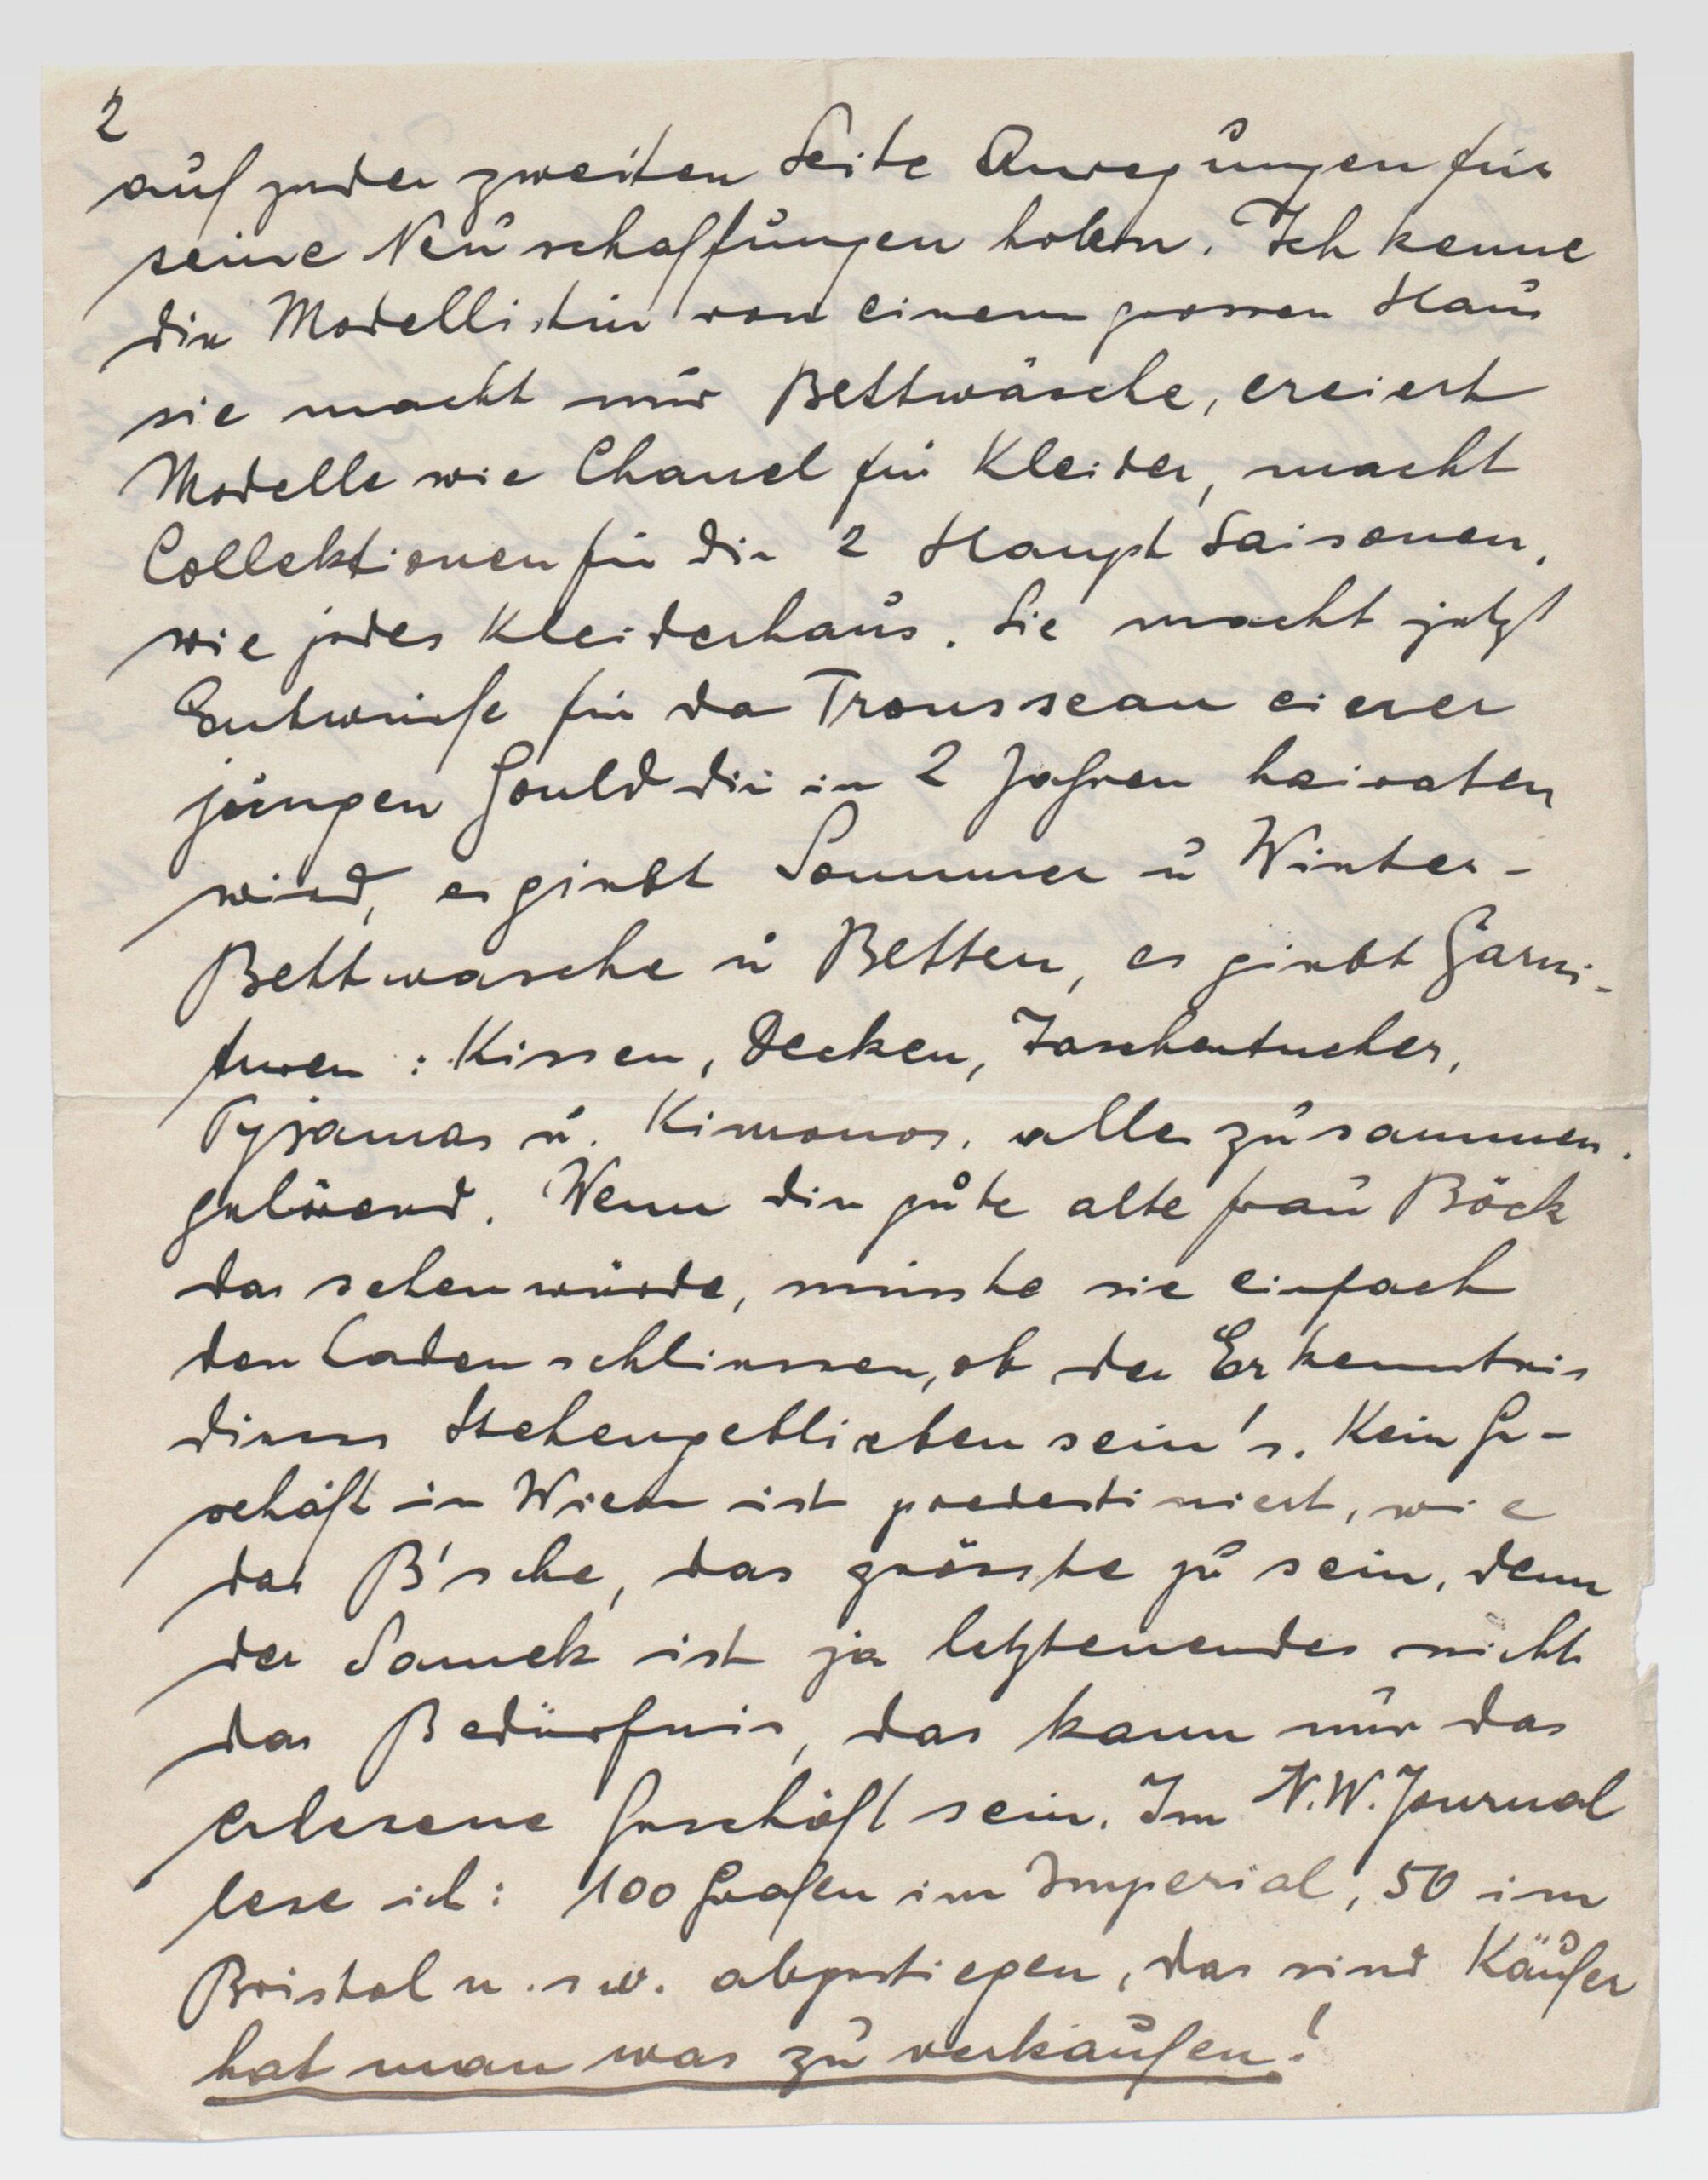 2
auf jeder zweiten Seite Anregungen für
seine Neuschaffungen holen. Ich kenne
die Modellistin von einem grossen Haus
sie macht nur Bettwäsche, creiert
Modelle wie Chanel für Kleider, macht
Collektionen für die 2 Haupt Saisonen,
wie jedes Kleiderhaus. Sie macht jetzt
Entwürfe für da Trousseau einer
jungen Gould die in 2 Jahren heiraten
wird, es giebt Sommer u Winter-
Bettwasche u Betten, es giebt Garni-
turen : Kissen, Decken, Taschentucher,
Pyjamas u. Kimonos. alles zusammen.
gehörend. Wenn die gute alte Frau Böck
das sehen würde, müsste sie einfach
den Laden schliessen, ob der Erkenntnis
dieses Stehengeblieben sein's. Kein Ge-
schäft in Wien ist predestiniert, wie
das B'sche, das grösste zu sein, denn
der Samek ist ja letztenendes nicht
das Bedürfnis, das kann nur das
erlesene Geschäft sein. Im N.W. Journal
lese ich: 100 Grafen im Imperial, 50 im
Bristol u.s.w. abgestiegen, das sind Käufer
hat man was zu verkaufen!